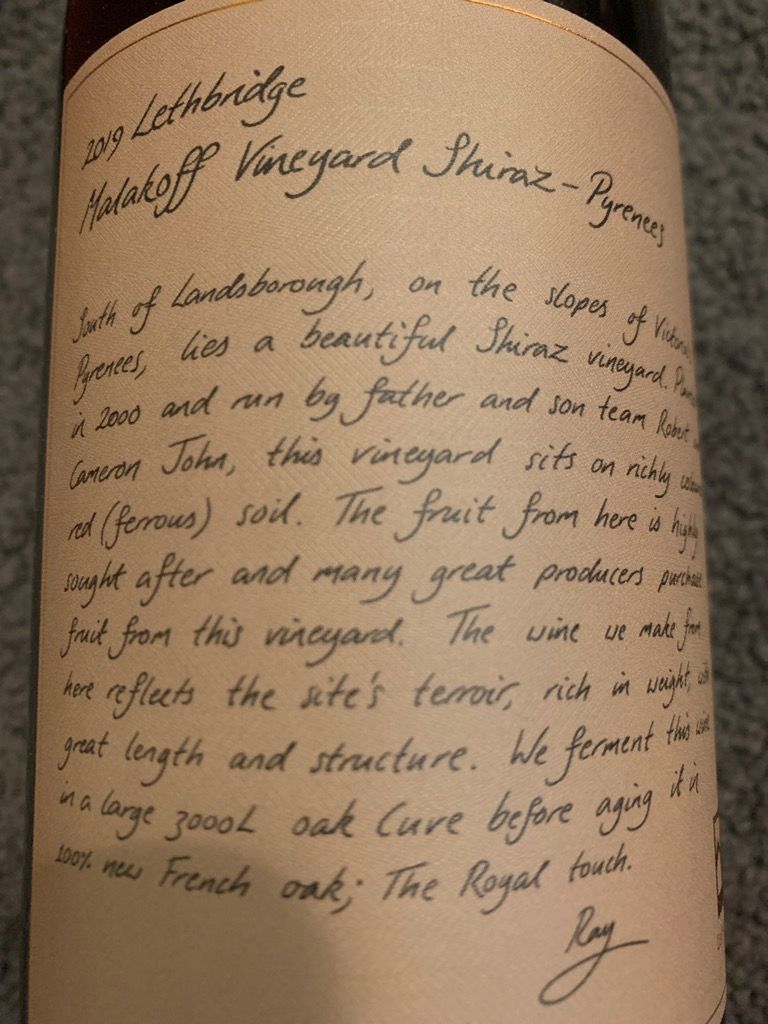 2019 Lethbridge
Malakoff Vineyard Shiraz - Pyrenees
South of Landsborough, on the slopes of
Pyrenees, lies a beautiful Shiraz vineyard.
in 2000 and run by father and son team Robert
Cameron John, this vineyard sits on richly
red (ferrous) soil. The fruit from here is highly
sought after and many great producers purchase
fruit from this vineyard. The wine we make from
here reflects the site's terroir, rich in weight, with
great length and structure. We ferment this wine
in a large 3000L oak Cuve before aging it in
100% new French oak; The Royal touch.
Ray